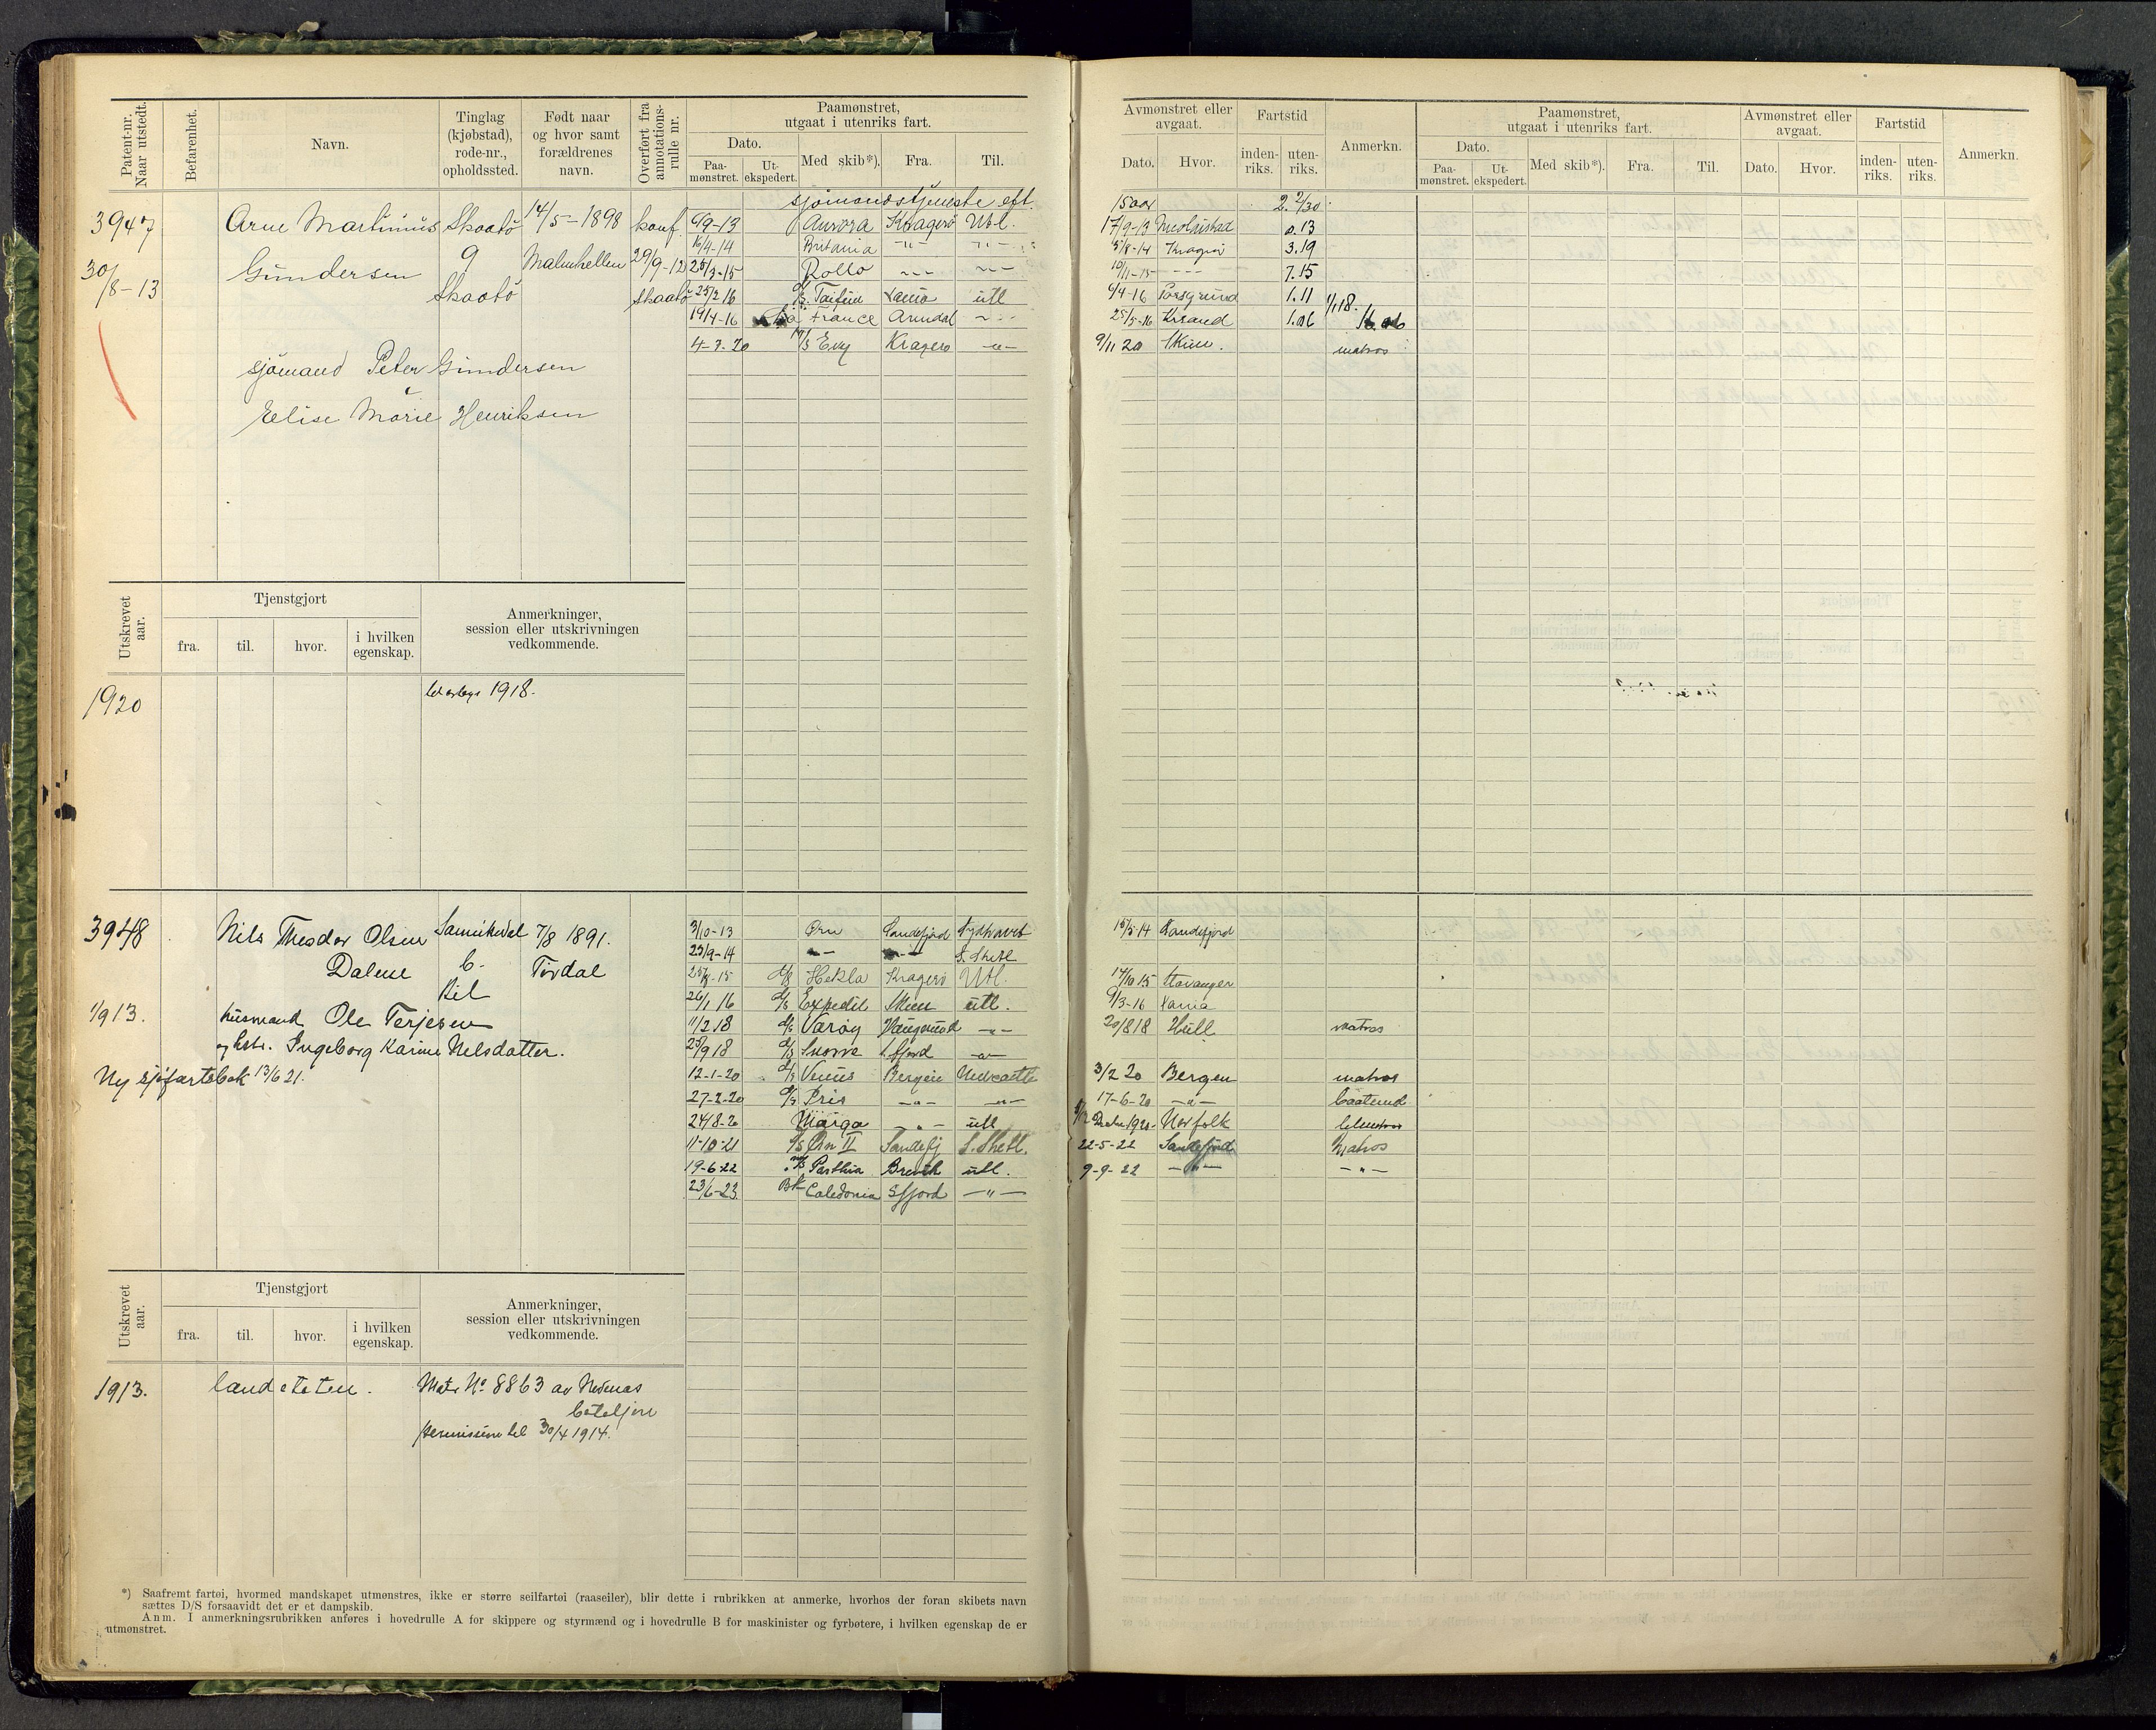 Patent-nr. Naar utstedt.
Befarenhet.
Navn.
Tinglag (kjøbstad), rode-nr., opholdssted.
Født naar og hvor samt forældrenes navn.
Overført fra annotations-rulle nr.
Paamønstret, utgaat i utenriks fart.
Dato.
Paa-mønstret.
Ut-ekspedert.
Med skib*).
Fra.
Til.
Avmønstret eller avgaat.
Dato.
Hvor.
Fartstid
inden-riks.
uten-riks.
Anmerkn.
Paamønstret, utgaat i utenriks fart.
Dato.
Paa-mønstret.
Ut-ekspedert.
Med skib*).
Fra.
Til.
Avmønstret eller avgaat.
Dato.
Hvor.
Fartstid
inden-riks.
uten-riks.
Anmerkn.
sjömandstjeneste eft. 15 aar
3947
30/8-13
Arne Martinius Gundersen
Skaatö 9 Skaatö
14/5-1898
Malmhellen
konf. 29/9-12 Skaatö
sjömand Peter Gundersen
Elise Marie Henriksen
6/9-13 Aurora Kragerö Utl. 17/9-13 0.13
16/4-14 Britania -"- -"- 5/8-14 Kragerö 3.19
25/3-15 Rollo -"- -"- 10/11-15 -"- 7.15
25/2 16 utl 6/4-16 Porsgrund 1.11
19/4-16 France Arendal -"- 25/5-16 Krsand 1.06
4-7-20 Evy Kragerö -"- 9/11 20 Skien. matros
Utskrevet aar.
Tjenstgjort
fra.
til.
hvor.
i hvilken egenskap.
Anmerkninger, session eller utskrivningen vedkommende.
1920
1918.
3948
1/9 13.
Nils Theodor Olsen Dalene
Sannikedal 6. Kil
7/8 1891.
Tördal
husmand Ole Terjesen
og hstr. Ingeborg Karine Nilsdatter.
Ny sjöfartsbok 13/6 21.
3/10-13 Örn Sandefjord Sydhavet 15/5-14 Sandefjord
23/9-14 -"- -"- S. Shetl
D/S Hekla Kragerö Utl. 14/10 15 Stavanger
26/1 16 D/S Expedit Skien utl. 9/3-16 Xania
11/2 18 D/S Varöy -"- 20/8 18 Hull matros
25/9 18 D/S Snorre S.fjord -"-
12-1-20 D/S Venus Bergen Newcastle 3/2 20 Bergen matros
27-2-20 D/S Pris -"- -"- 17-6-20 -"- Baatsmd
24/8-20 Marga -"- utl Norfolk
11-10-21 D/S Örn II Sandefj S. Shetl. 22-5-22 Sandefjord Matros
19-6-22 Parthia Brevik utl. 9-9-22 -"- -"-
23/6-23 Bk Caledonia Sfjord -"-
Utskrevet aar.
Tjenstgjort
fra.
til.
hvor.
i hvilken egenskap.
Anmerkninger, session eller utskrivningen vedkommende.
1913.
landetaten.
Matr No 8863 av Nedenæs bataljon
permission til 30/4 1914.
*) Saafremt fartøi, hvormed mandskapet utmønstres, ikke er større seilfartøi (raaseiler), blir dette i rubrikken at anmerke, hvorhos der foran skibets navn
sættes D/S forsaavidt det er et dampskib.
Anm. I anmerkningsrubrikken anføres i hovedrulle A for skippere og styrmænd og i hovedrulle B for maskinister og fyrbøtere, i hvilken egenskap de er
utmønstret.